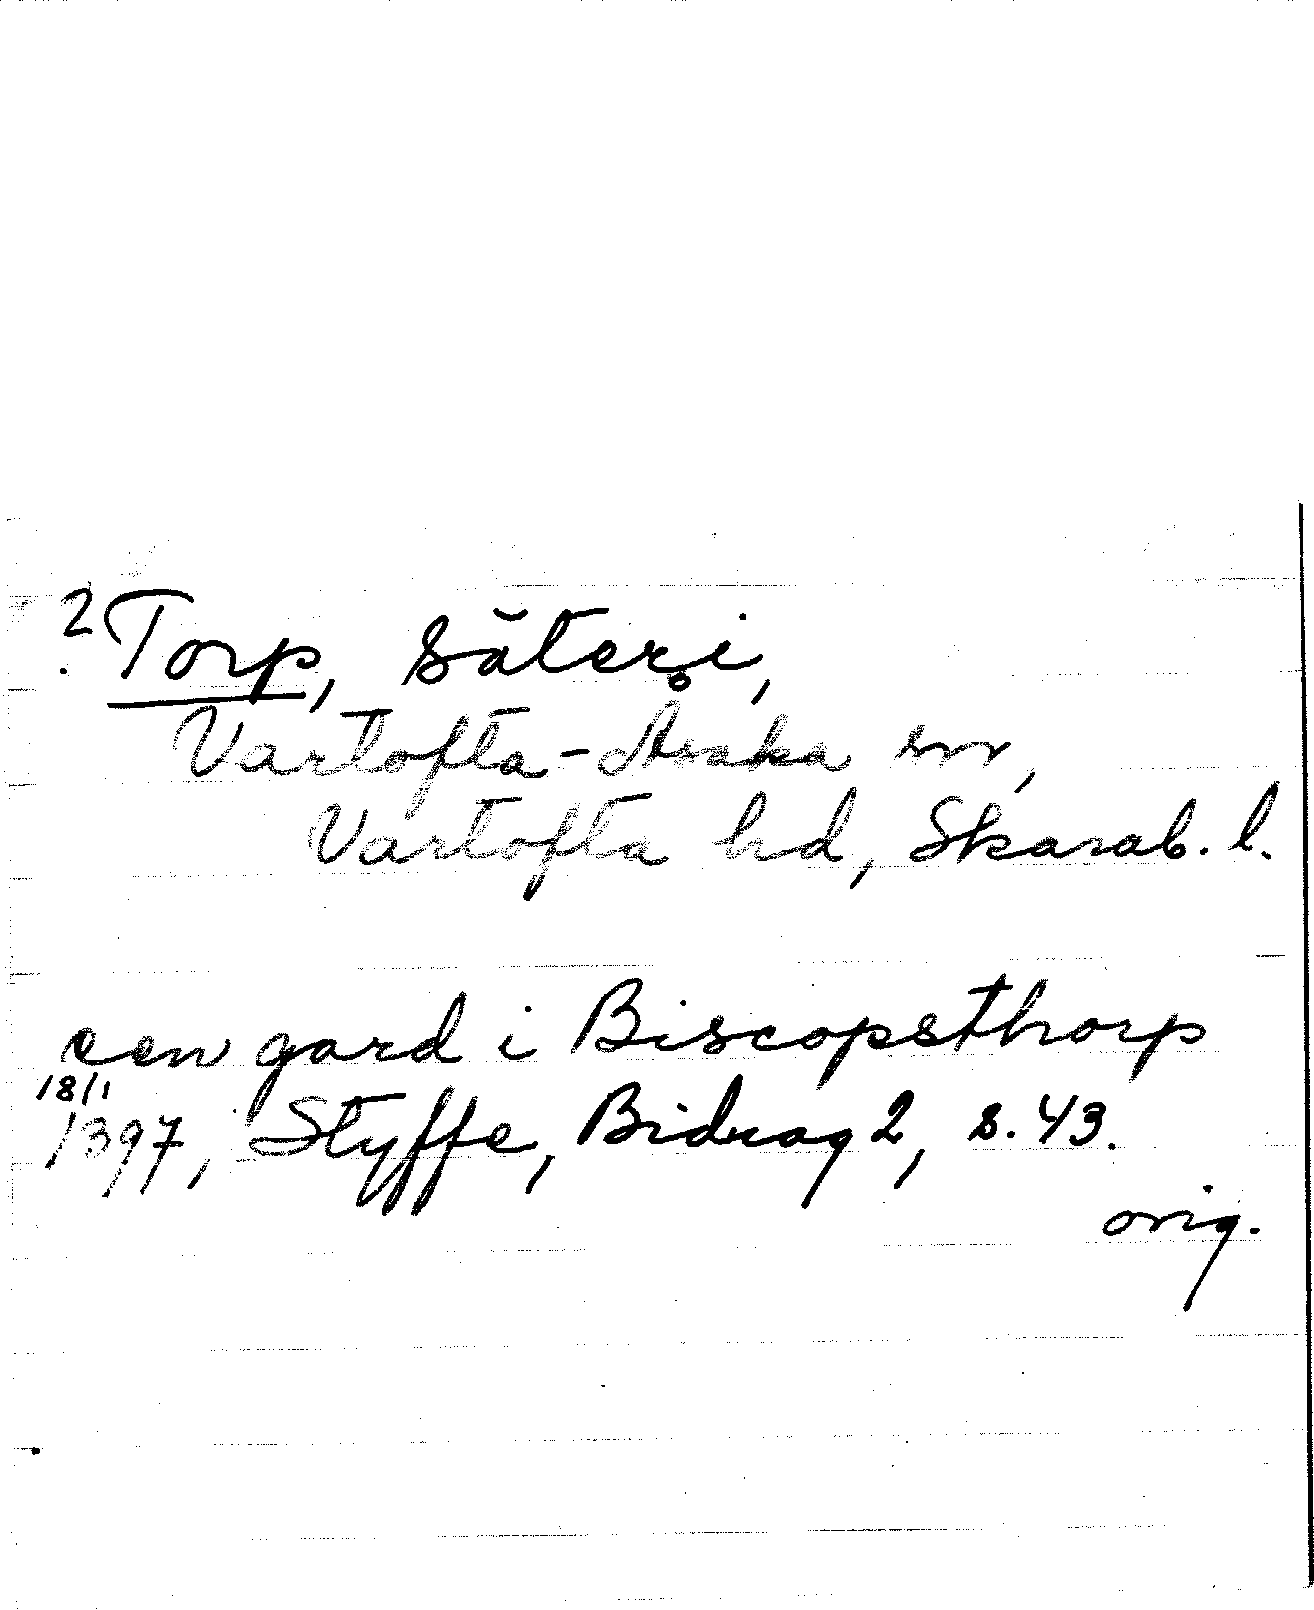 ? Torp, säteri,
Vartofta-Åsaka sn,
Vartofta hd, Skarab. l.
een gard i Biscopsthorp
18/1
1397, Styffe, Bidrag 2, s. 43.
orig.